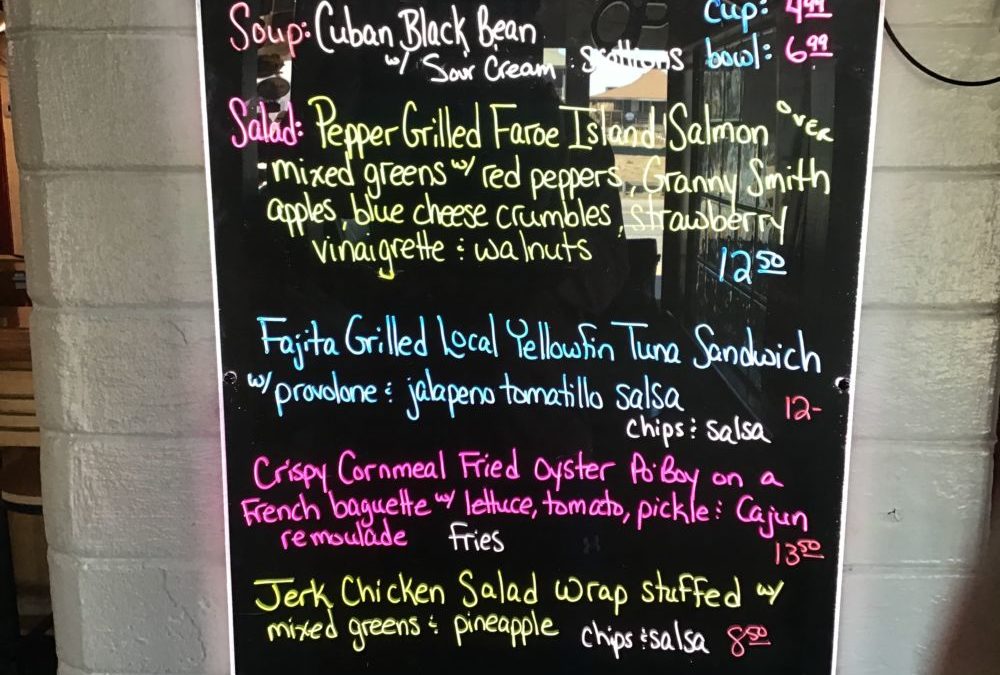 Soup: Cuban Black Bean cup: 4.99
w/ Sour Cream & scallions bowl: 6.99
Salad: Pepper Grilled Faroe Island Salmon over
mixed greens w/ red peppers, Granny Smith
apples, blue cheese crumbles, strawberry
vinaigrette & walnuts 12.50
Fajita Grilled Local Yellowfin Tuna Sandwich
w/ provolone & jalapeno tomatillo salsa
chips & salsa 12-
Crispy Cornmeal Fried Oyster Po'Boy on a
French baguette w/ lettuce, tomato, pickle & Cajun
remoulade Fries 13.50
Jerk Chicken Salad Wrap stuffed w/
mixed greens & pineapple chips & salsa 8.50